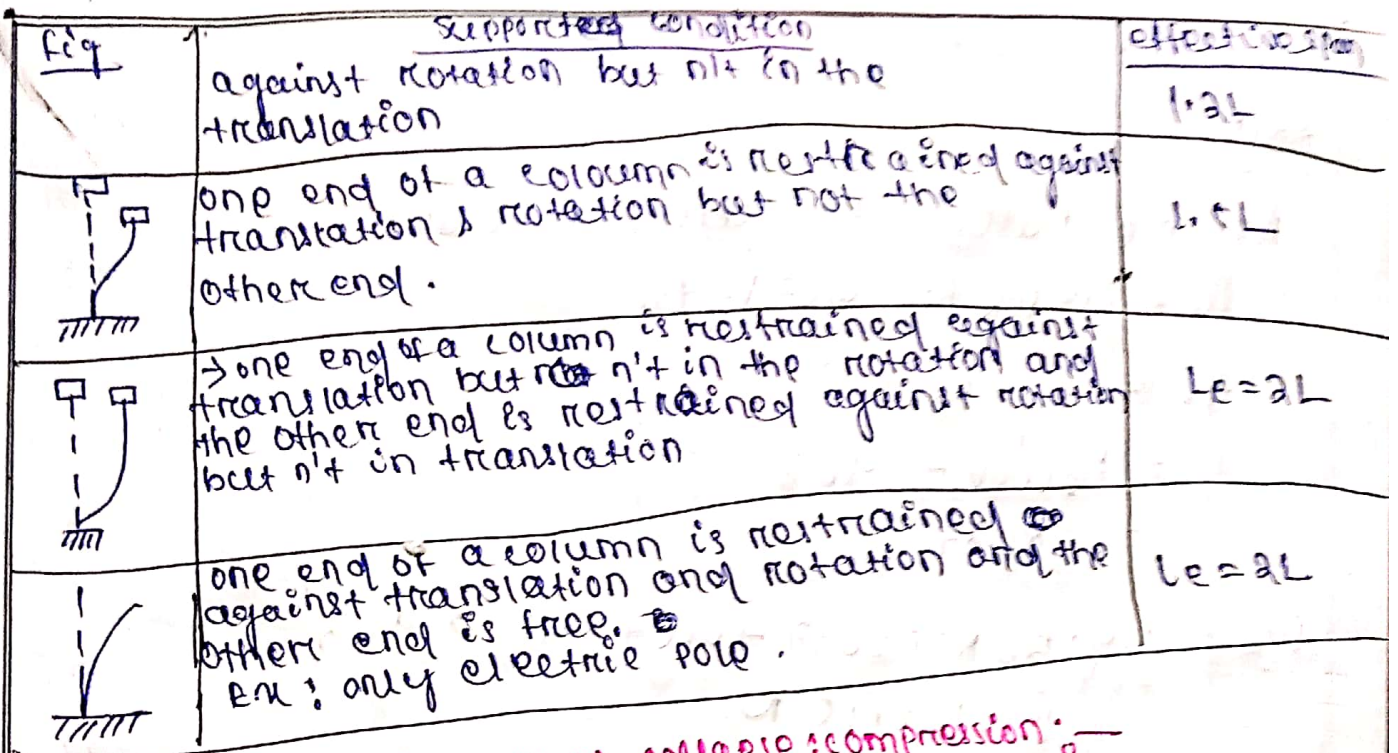 fig
supporters condition
effective span
against rotation but n't in the
translation
1.2L
one end of a coloumn is restrained against
translation & rotation but not the
other end.
1.5L
→ one end of a column is restrained against
translation but n't in the rotation and
the other end is restrained against rotation
but n't in translation
LE = 2L
one end of a column is restrained
against translation and rotation and the
other end is free.
Ex: only electric pole.
Le = 2L
compression :—